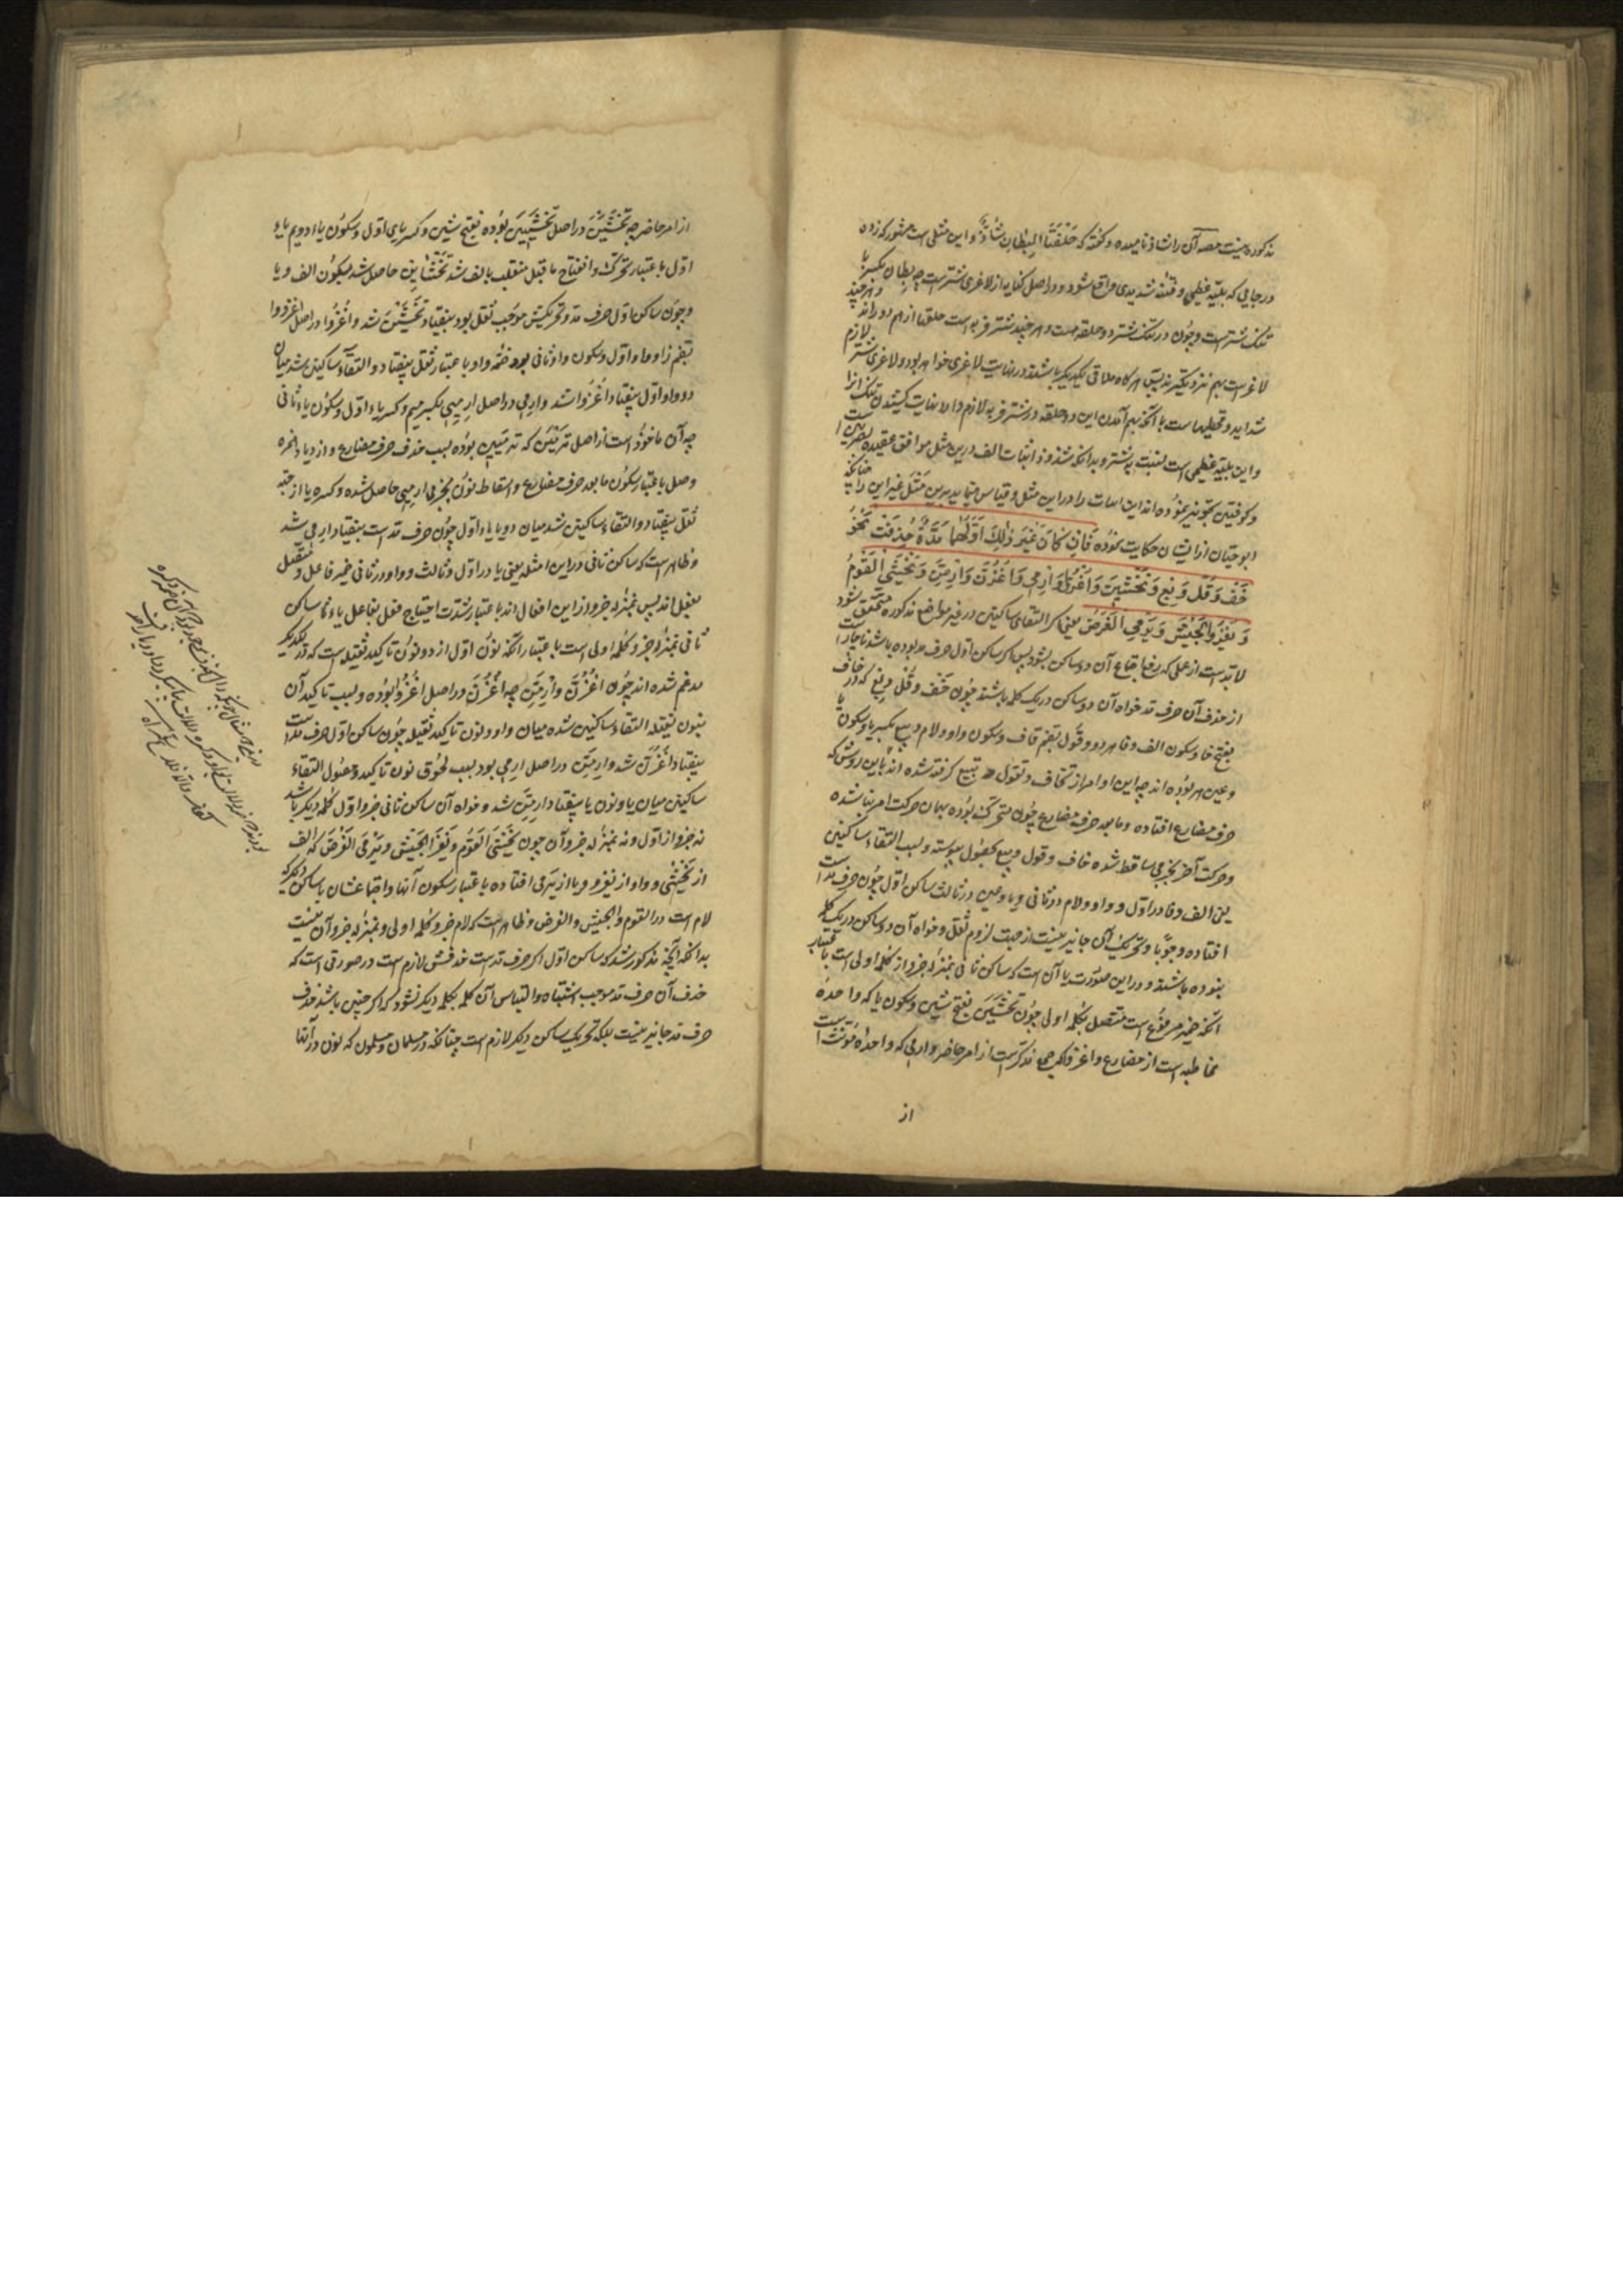 مذکوره نیست مصه آن را شاذ نامیده و گفته که حَلْقَتَا البِطانِ شاذٌّ و این مثلی است مشهور که زده
در جایی که بلیّه عظمی و فتنه شدیدی واقع شود و در اصل کنایه از لاغری شتر است چه بطان بکسر با
تنک شتر است و چون در تنک شتر دو حلقه است و هر چند شتر فربه است حلقتا از هم دور اند و هر چند
لاغر است بهم نزدیکتر پس هر گاه ملاقی یکدیگر باشند در نهایت لاغری خواهد بود و لاغری شتر لازم
شداید و قحطیها است با آنکه بهم آمدن این دو حلقه در شتر فربه لازم دارد نهایت کشیدن تنک را
و این بلیّه عظمی است نسبت به شتر و بدانکه شذوذ اثبات الف درین مثل موافق عقیده بصریین است
و کوفیین تجویز نموده اند این اثبات را در این مثل و قیاس می نمایند برین مثل غیر این را چنانچه
ابو حیّان از ایشان حکایت نموده فَاِنْ كَانَ غَيْرَ ذٰلِكَ اَوَّلُهُمَا مَدَّةٌ حُذِفَتْ نَحْوُ
خَفْ وَ قُلْ وَ بِعْ وَ تَخْشَيْنَ وَ اغْزُوا وَ ارْمِي وَ اغْزُنَّ وَ ارْمِنَّ وَ يَخْشَى الْقَوْمُ
وَ يَغْزُو الْجَيْشُ وَ يَرْمِي الْغَرَضَ یعنی اگر التقای ساکنین در غیر مواضع مذکوره متحقق شود
لابد است از عملی که رفع اجتماع آن دو ساکن بشود پس اگر ساکن اول حرف مد بوده باشد ناچار است
از حذف آن حرف مد خواه آن دو ساکن در یک کلمه باشند چون خَفْ و قُلْ و بِعْ که در خاف
بفتح خا و سکون الف و فا بود و قول بضم قاف و سکون واو و لام و بیع بکسر با و سکون یا
و عین بوده اند چه این اوامر از تخاف و تقول و تبیع گرفته شده اند باین روش که
حرف مضارع افتاده و ما بعد حرف مضارع چون متحرک بوده بهمان حرکت امر بنا شده
و حرکت آخر بجزمی ساقط شده خاف و قول و بیع بحصول پیوسته و بسبب التقاء ساکنین
یعنی الف و فا در اول و واو و لام در ثانی و یا و عین در ثالث ساکن اول چون حرف مد است
افتاده وجوبا و تحریک آن جایز نیست از جهت لزوم ثقل و خواه آن دو ساکن در یک کلمه
نبوده باشند و در این صورت یا آن است که ساکن ثانی بمنزله جزو از کلمه اولی است باعتبار
آنکه ضمیر مرفوع است متصل بکلمه اولی چون تَخْشَيْنَ بفتح شین و سکون یا که واحده
مخاطبه است از مضارع و اغزوا که جمع مذکر است از امر حاضر و ارمی که واحده مؤنث است
از
از امر حاضر چه تَخْشَيْنَ در اصل تَخْشَيِينَ بوده بفتح شین و کسر یای اول و سکون یای دویم یای
اول باعتبار تحرک و انفتاح ما قبل منقلب بالف شد تَخْشَايْنَ حاصل شد بسکون الف و یا
و چون ساکن اول حرف مد و تحریکش موجب ثقل بود بیفتاد و تَخْشَيْنَ شد و اُغْزُوا در اصل اغزووا
بضم زا و واو اول و سکون واو ثانی بود ضمه واو باعتبار ثقل بیفتاد و التقاء ساکنین شد میان
دو واو اول بیفتاد اُغْزُوا شد و ارمی در اصل ارمیی بکسر میم و کسر یاء اول و سکون یاء ثانی
چه آن ماخوذ است از اصل ترمین که ترمیین بوده بسبب حذف حرف مضارع و ازدیاد همزه
وصل باعتبار سکون ما بعد حرف مضارع و اسقاط نون بجزمی ارمیی حاصل شده و کسره یا از جهة
ثقل بیفتاد و التقاء ساکنین شد میان دو یا یاء اول چون حرف مد است بیفتاد ارمی شد
و ظاهر است که ساکن ثانی در این امثله یعنی یا در اول و ثالث و واو در ثانی ضمیر فاعل و متصل
بفعل اند پس بمنزله جزو از این افعال اند باعتبار شدت احتیاج فعل بفاعل یا آن ساکن
ثانی بمنزله جزو کلمه اولی است باعتبار آنکه نون اول از دو نون تاکید ثقیله است که در یکدیگر
مدغم شده اند چون اغْزُنَّ و ارْمِنَّ چه اُغْزُنَّ در اصل اغْزُوا بوده و بسبب تاکید آن
بنون ثقیله التقاء ساکنین شده میان واو و نون تاکید ثقیله چون ساکن اول حرف مد است
بیفتاد اُغْزُنَّ شد و ارمِنَّ در اصل ارمی بود بسبب لحوق نون تاکید و حصول التقاء
ساکنین میان یا و نون یا بیفتاد ارمِنَّ شد و خواه آن ساکن ثانی جزو اول کلمه دیگر باشد
نه جزو از اول و نه بمنزله جزو آن چون یَخْشَی القَوْمُ و یَغْزُو الجَیْشُ و یَرْمی الغَرَضَ که الف
از یخشی و واو از یغزو و یا از یرمی افتاده باعتبار سکون آنها و اجتماعشان با ساکن دیگر که
لام است در القوم و الجیش و الغرض و ظاهر است که لام جزو کلمه اولی و بمنزله جزو آن نیست
بدانکه آنچه مذکور شد که ساکن اول اگر حرف مد است حذفش لازم است در صورتی است که
حذف آن حرف مد موجب اشتباه و التباس آن کلمه بکلمه دیگر نشود که اگر چنین باشد حذف
حرف مد جایز نیست بلکه تحریک ساکن دیگر لازم است چنانکه در مسلمان و مسلمون که نون در آنها